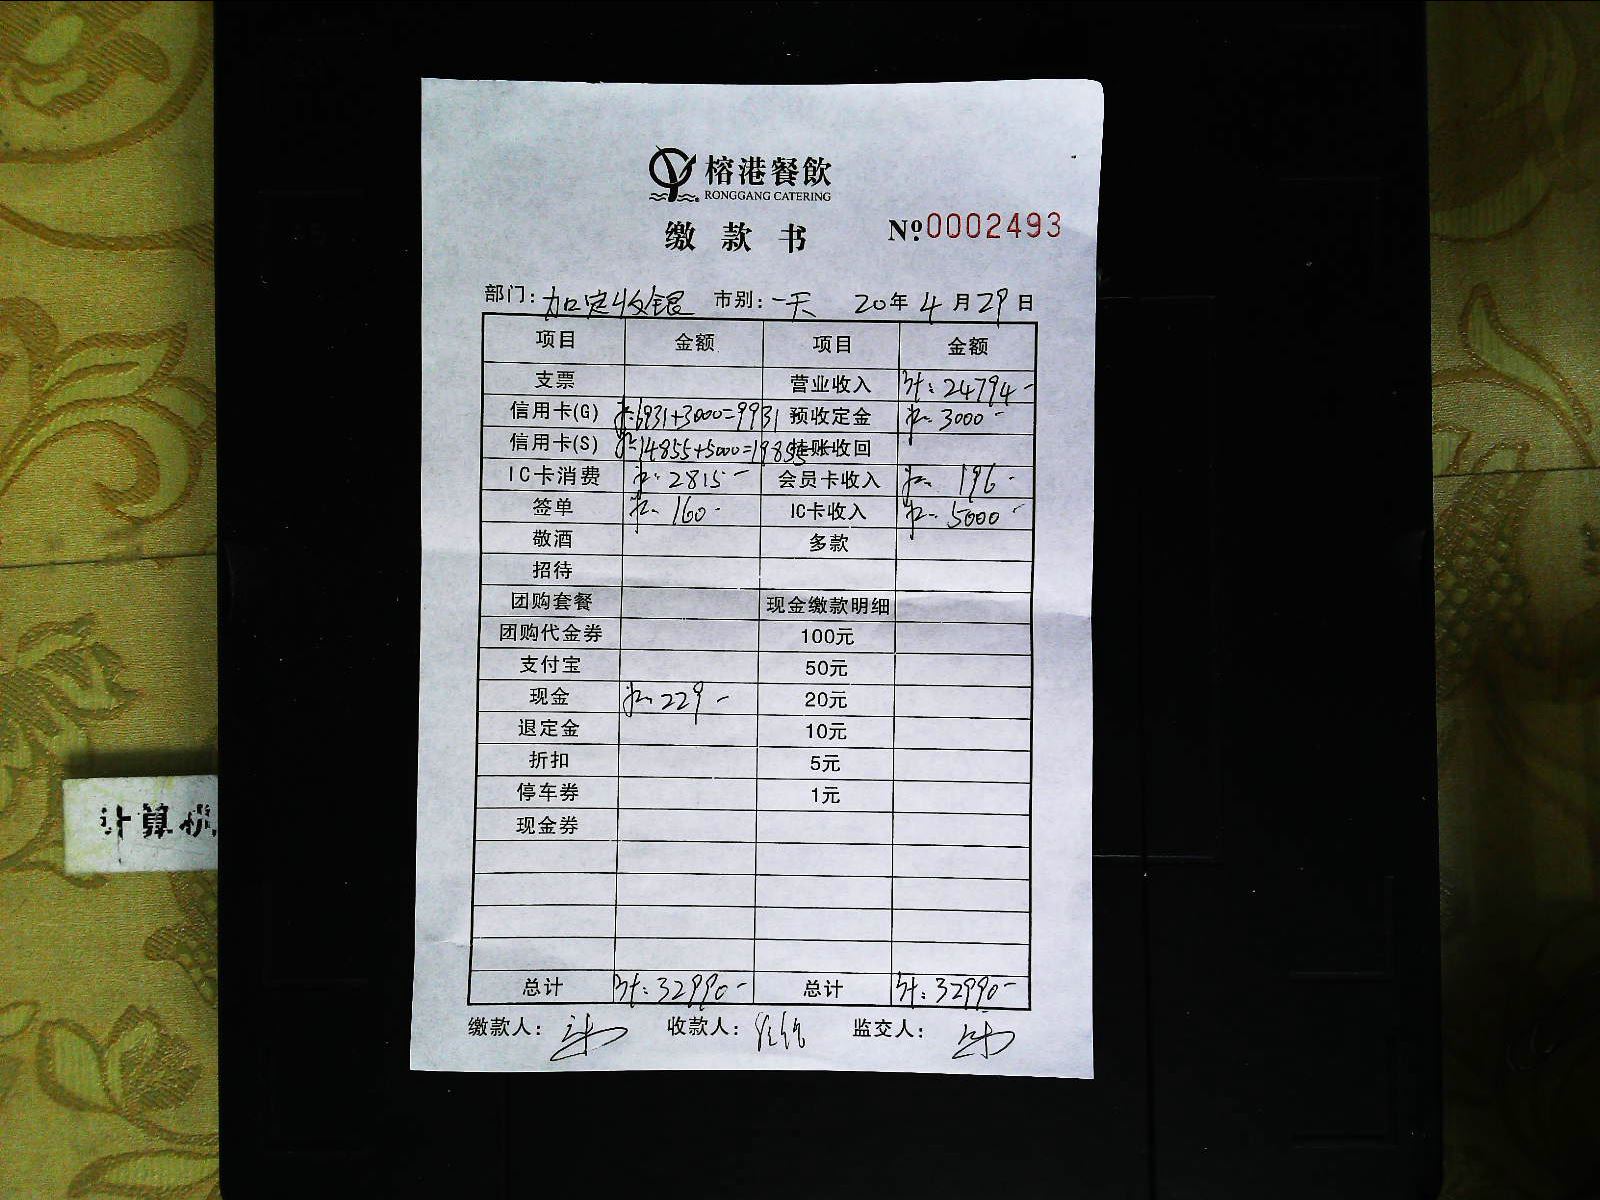 榕港餐飲
RONGGANG CATERING
缴款书 №0002493
部门: 加定收银 市别: 一天 20年4月29日
项目 金额 项目 金额
支票 营业收入 计: 24794-
信用卡(G) 6931+3000=9931 预收定金 3000-
信用卡(S) 14855+5000=19855 挂账收回
IC卡消费 2815- 会员卡收入 196-
签单 160- IC卡收入 5000-
敬酒 多款
招待
团购套餐 现金缴款明细
团购代金券 100元
支付宝 50元
现金 229- 20元
退定金 10元
折扣 5元
停车券 1元
现金券
总计 计: 32990- 总计 计: 32990-
缴款人: 收款人: 监交人:
计算机